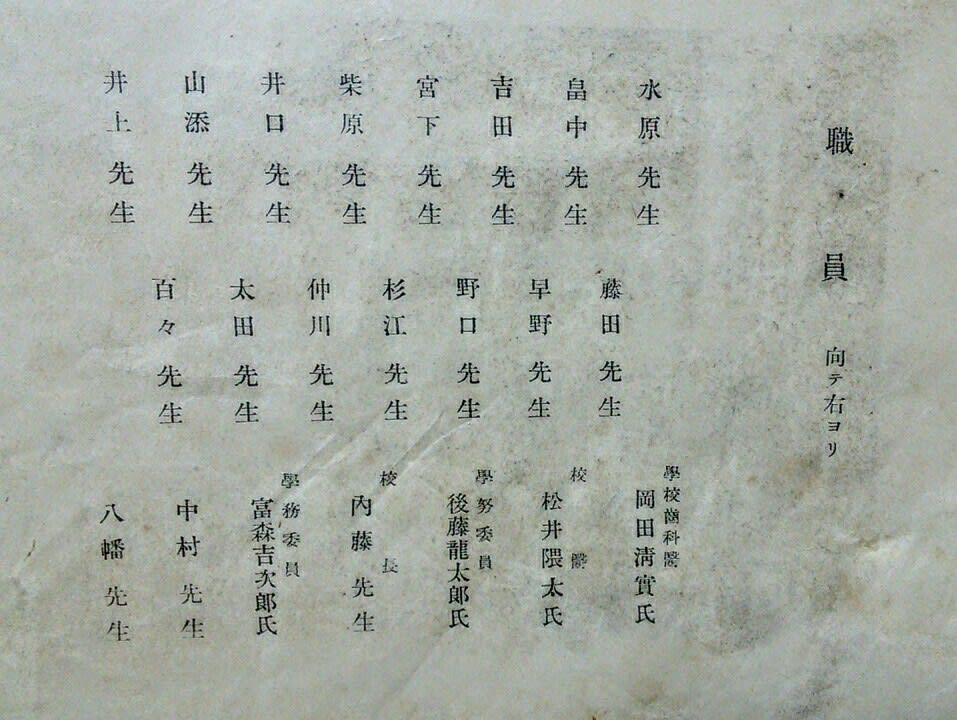 職員 向テ右ヨリ
水原先生
畠中先生
吉田先生
宮下先生
柴原先生
井口先生
山添先生
井上先生
藤田先生
早野先生
野口先生
杉江先生
仲川先生
太田先生
百々先生
學校齒科醫
岡田淸實氏
校醫
松井隈太氏
學努委員
後藤龍太郞氏
校長
內藤先生
學務委員
富森吉次郞氏
中村先生
八幡先生